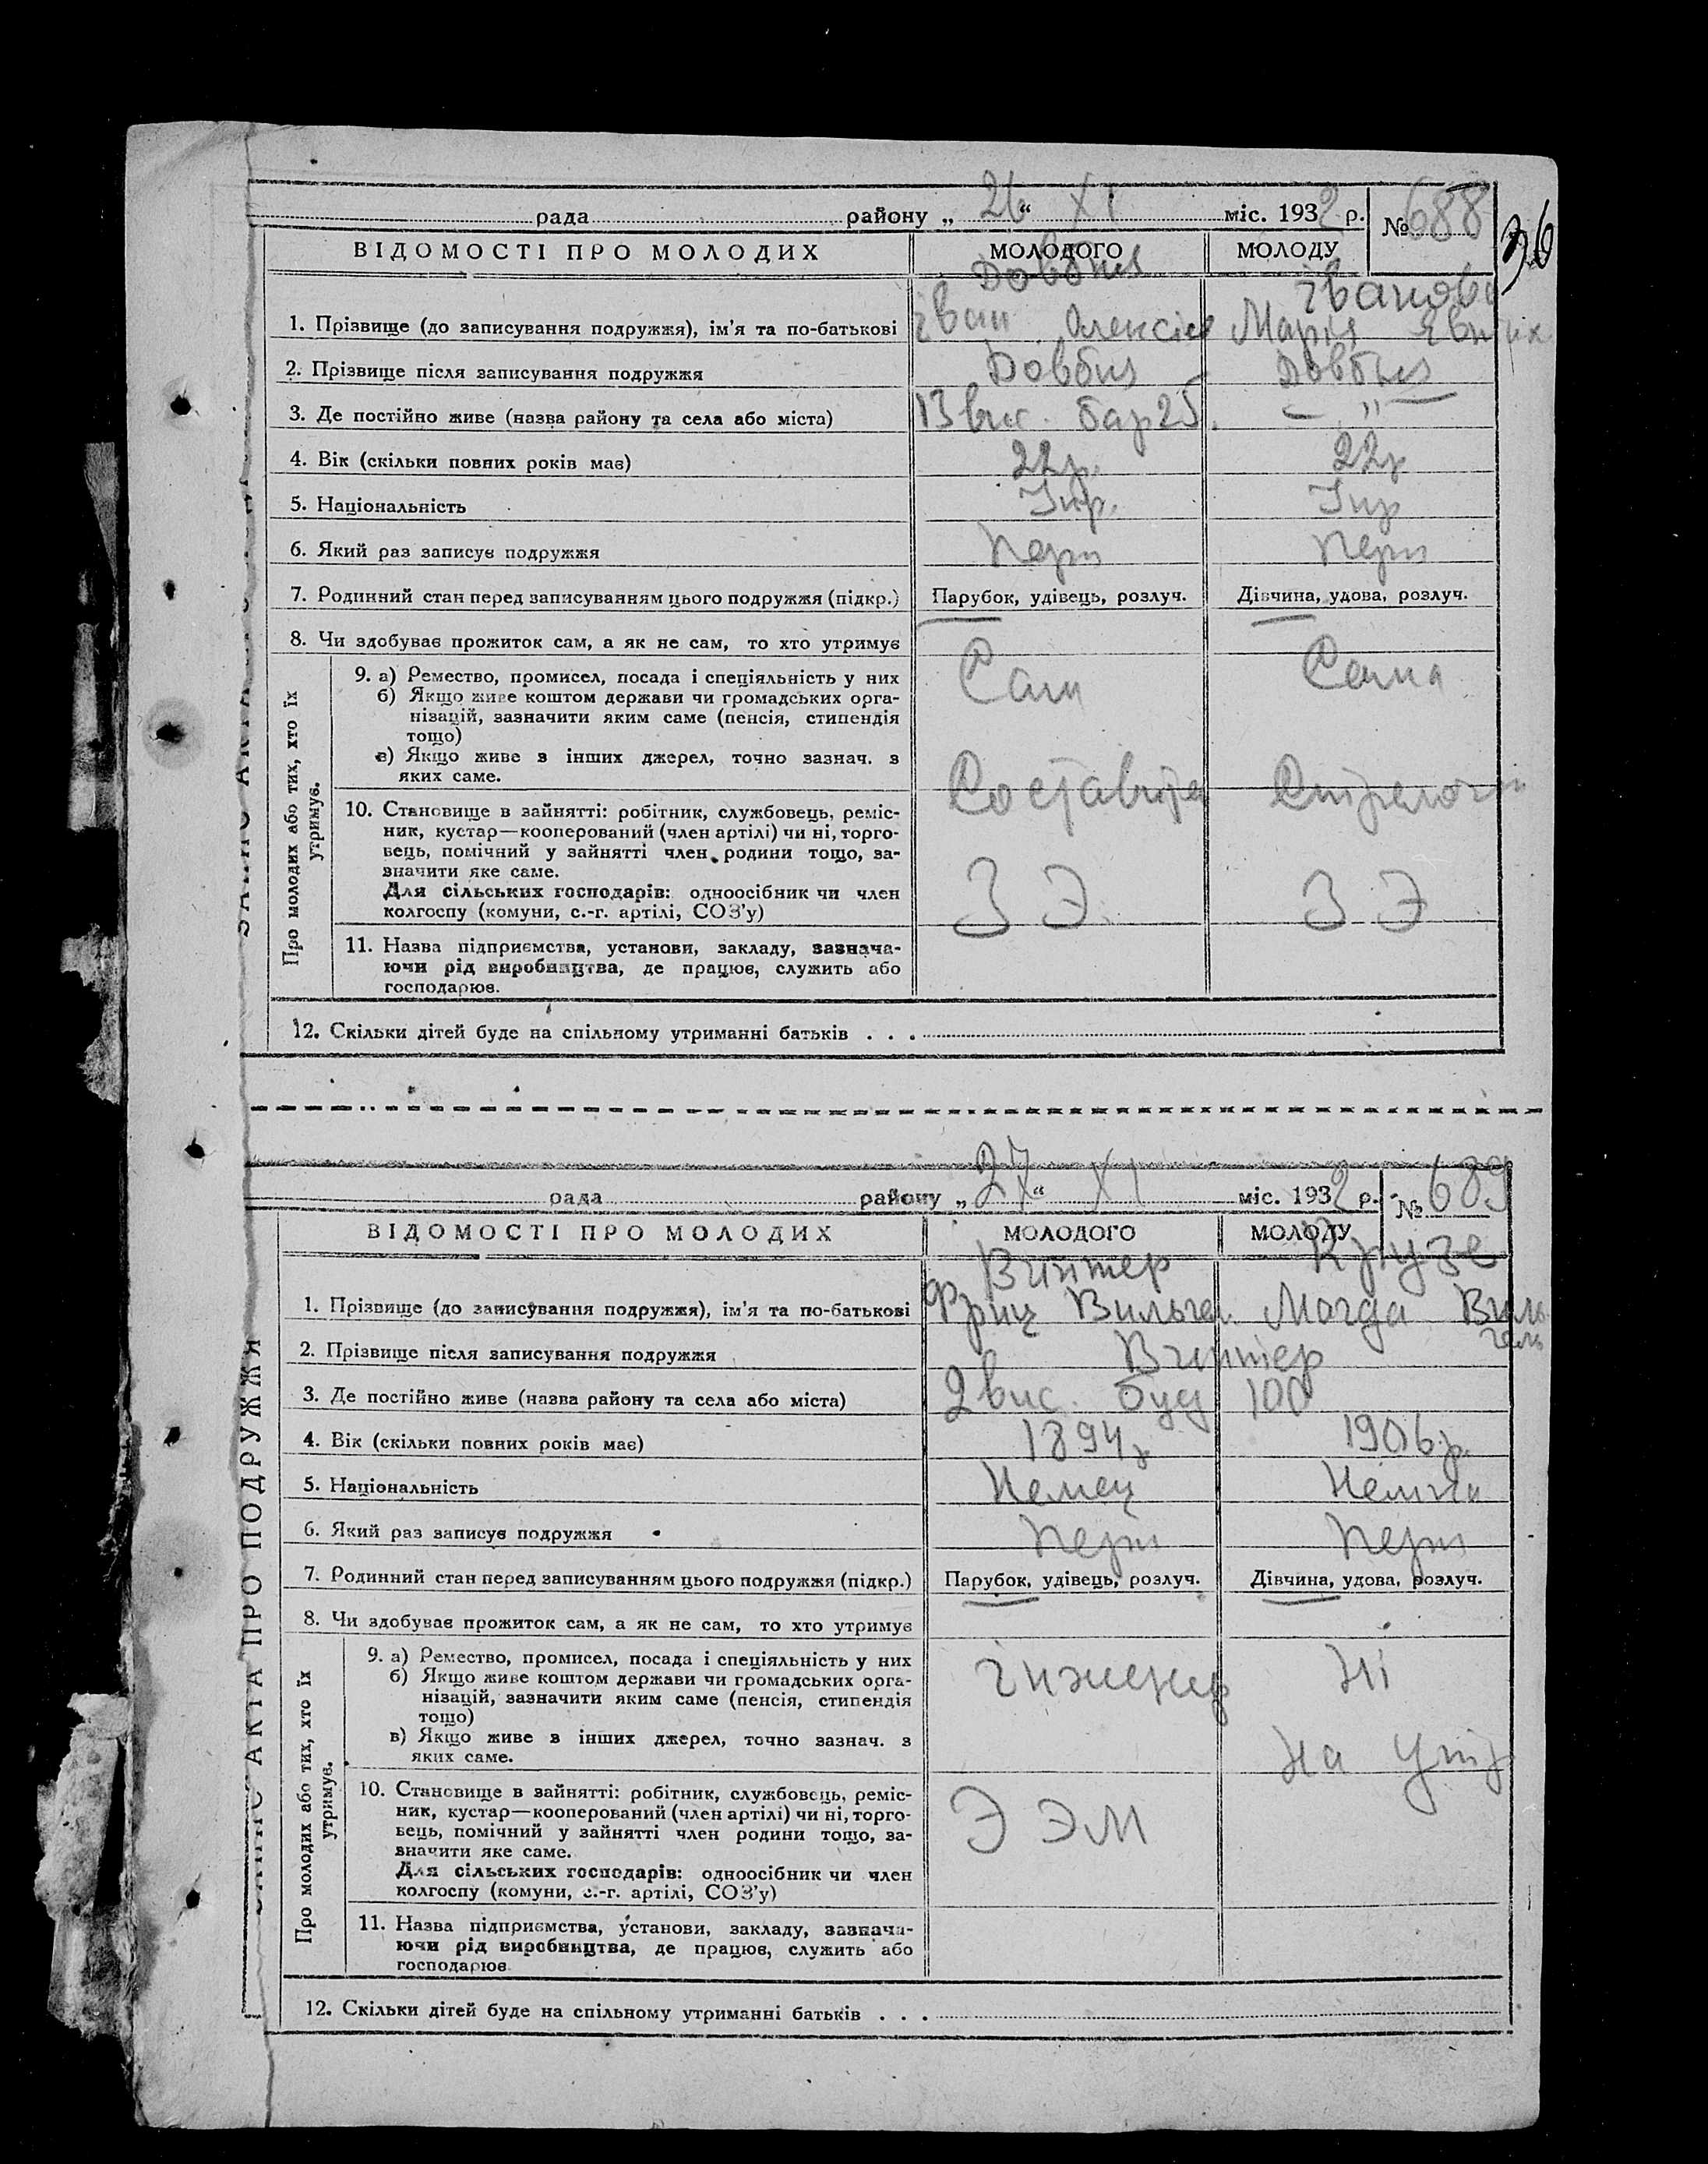 рада района „ 26 “ XI міс. 1932 р. № 688
36
ВІДОМОСТІ ПРО МОЛОДИХ МОЛОДОГО МОЛОДУ
Довбня Іванова
1. Прізвище (до записування подружжя), ім'я та по-батькові Іван Олексієв Марія
2. Прізвище після записування подружжя Довбня Довбня
3. Де постійно живе (назва району та села або міста) 13 вис. бар 25. — " —
4. Вік (скільки повних років має) 22 р. 22 р
5. Національність Укр. Укр
6. Який раз записує подружжя перш перш
7. Родинний стан перед записуванням цього подружжя (підкр.) Парубок, удівець, розлуч. Дівчина, удова, розлуч.
8. Чи здобуває прожиток сам, а як не сам, то хто утримує
Сам Сама
Про молодих або тих, хто їх утримує.
9. а) Ремество, промисел, посада і спеціяльність у них
б) Якщо живе коштом держави чи громадських орга-
нізацій, зазначити яким саме (пенсія, стипендія
тощо)
в) Якщо живе з інших джерел, точно зазнач. з
яких саме.
10. Становище в зайнятті: робітник, службовець, реміс-
ник, кустар—кооперований (член артілі) чи ні, торго-
вець, помічний у зайнятті член родини тощо, за-
значити яке саме.
Для сільських господарів: одноосібник чи член
колгоспу (комуни, с.-г. артілі, СОЗ'у)
З Э. З Э
11. Назва підприємства, установи, закладу, зазнача-
ючи рід виробництва, де працює, служить або
господарює.
12. Скільки дітей буде на спільному утриманні батьків . . .
рада району „ 27 “ XI міс. 1932 р. № 689
ВІДОМОСТІ ПРО МОЛОДИХ МОЛОДОГО МОЛОДУ
Винтер Крузе
1. Прізвище (до записування подружжя), ім'я та по-батькові Фриц Вильгел. Магда Виль
гель
2. Прізвище після записування подружжя Винтер
3. Де постійно живе (назва району та села або міста) 2 вис. буд 100
4. Вік (скільки повних років має) 1894 р 1906 р.
5. Національність Немец Немка
6. Який раз записує подружжя перш перш
7. Родинний стан перед записуванням цього подружжя (підкр.) Парубок, удівець, розлуч. Дівчина, удова, розлуч.
8. Чи здобуває прожиток сам, а як не сам, то хто утримує
ЗАПИС АКТА ПРО ПОДРУЖЖЯ
Про молодих або тих, хто їх утримує.
9. а) Ремество, промисел, посада і спеціяльність у них
б) Якщо живе коштом держави чи громадських орга-
нізацій, зазначити яким саме (пенсія, стипендія
тощо)
в) Якщо живе з інших джерел, точно зазнач. з
яких саме.
інженер Ні
На утр
10. Становище в зайнятті: робітник, службовець, реміс-
ник, кустар—кооперований (член артілі) чи ні, торго-
вець, помічний у зайнятті член родини тощо, за-
значити яке саме.
Для сільських господарів: одноосібник чи член
колгоспу (комуни, с.-г. артілі, СОЗ'у)
Э Э М
11. Назва підприємства, установи, закладу, зазнача-
ючи рід виробництва, де працює, служить або
господарює
12. Скільки дітей буде на спільному утриманні батьків . . .